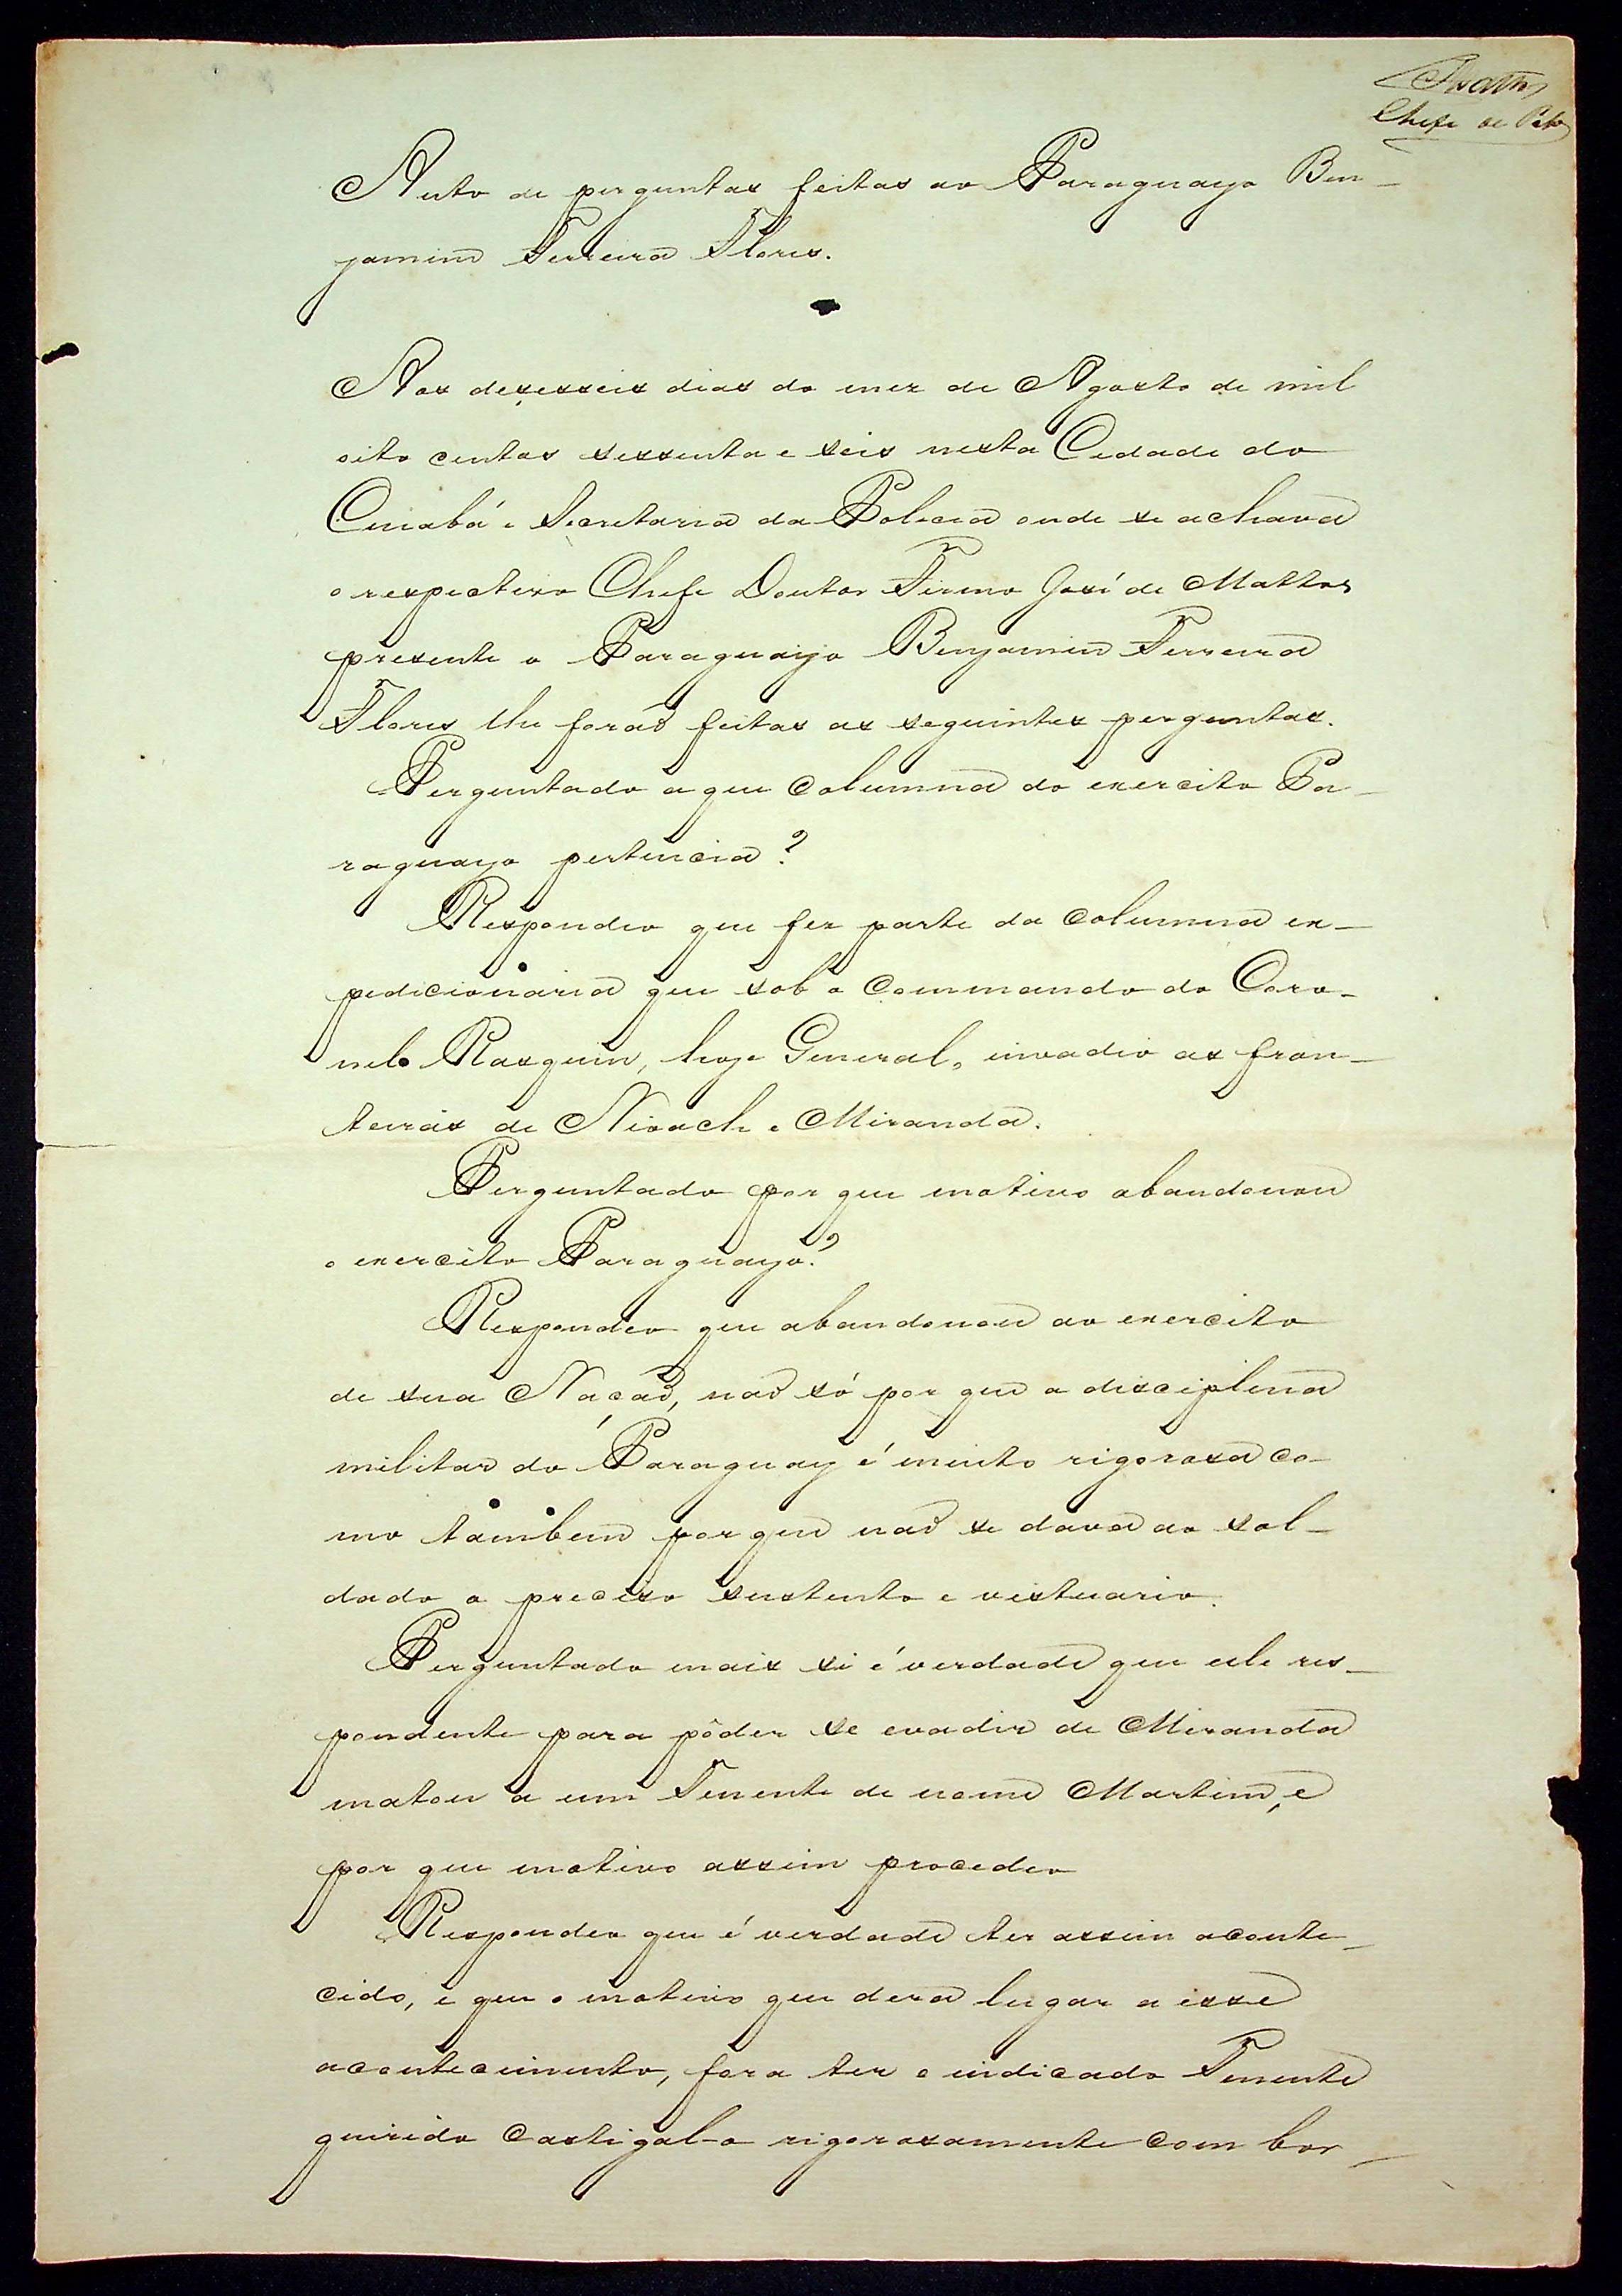 Chefe de
Auto de perguntas feitas ao Paraguayo Ben-
jamim Ferreira Flores.
Aos desesseis dias do mez de Agosto de mil
oito centos sessenta e seis nesta Cidade do
Cuiabá e Secretaria da Policia onde se achava
o respectivo Chefe Doutor Firmo José de Mattos
presente o Paraguayo Benjamim Ferreira
Flores lhe foraõ feitas as seguintes perguntas.
Perguntado a que columna do exercito Pa-
raguayo pertencia?
Respondeo que fez parte da columna ex-
pedicionaria que sob o commando do Coro-
nel Rasquin, hoje General, invadio as fron-
teiras de Nioach e Miranda.
Perguntado por que motivo abandonou
o exercito Paraguayo?
Respondeo que abandonou ao exercito
de sua Naçaõ, naõ só por que a disciplina
militar do Paraguay é muito rigorosa co-
mo tambem por que naõ se dava ao sol-
dado o preciso sustento e vestuario.
Perguntado mais si é verdade que elle res-
pondente para pôder se evadir de Miranda
matou a um Tenente de nome Martim, e
por que motivo assim procedeo
Respondeo que é verdade ter assim aconte-
cido, e que o motivo que dera lugar a esse
acontecimento, fora ter o indicado Tenente
querido castigal-o rigorosamente com bor-